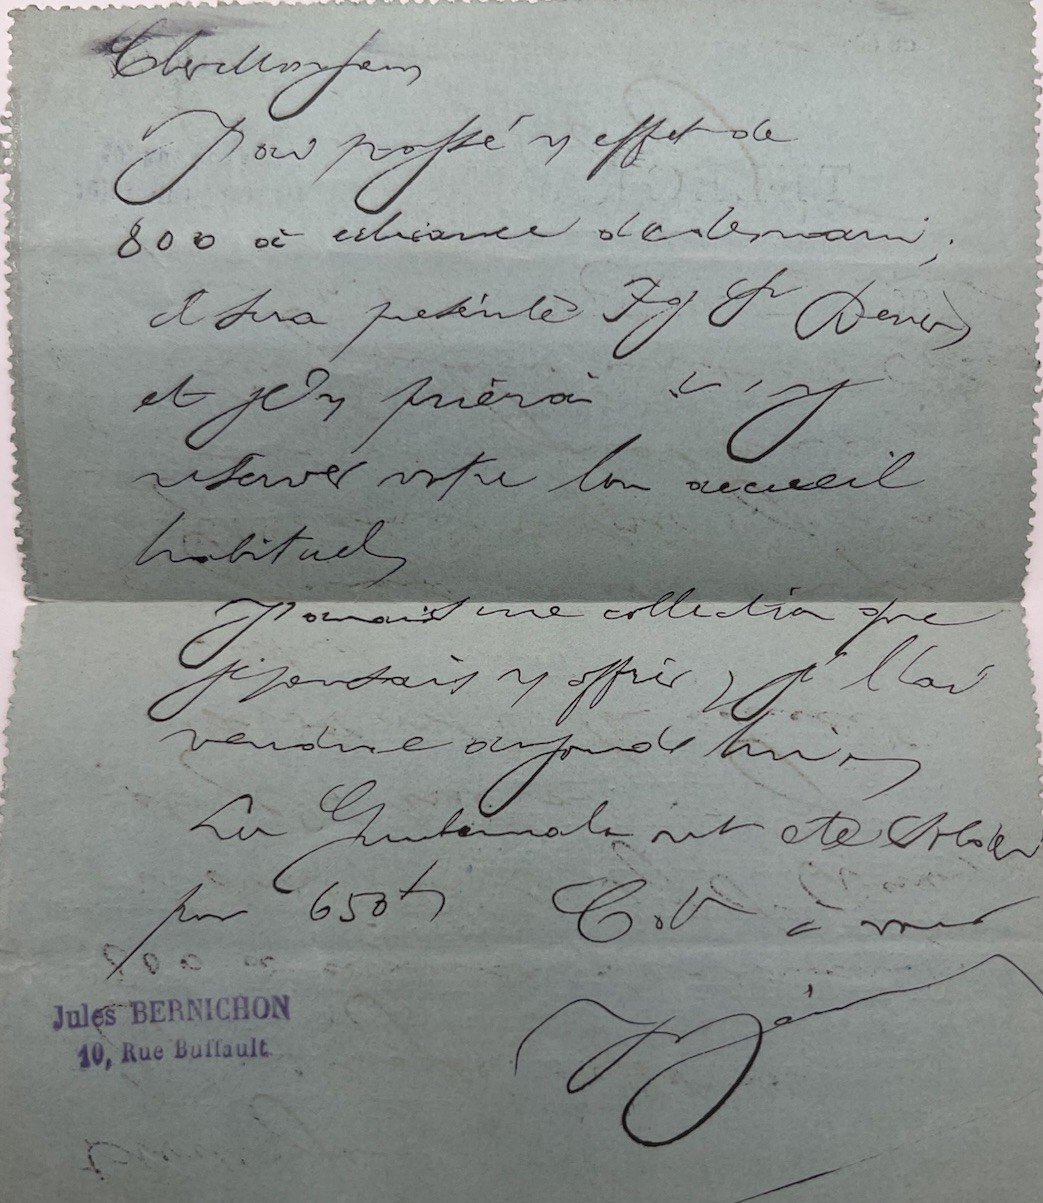 Cher Monsieur
J'ai passé un effet de
800 à échéance d'après demain,
il sera présenté Fg St Denis
et je vous prierai
réserver votre bon accueil
habituel
J'avais une collection que
je pensais offrir, je l'ai
vendue aujourd'hui
Guatemala ont été
par 650 f
Jules BERNICHON
10, Rue Buffault